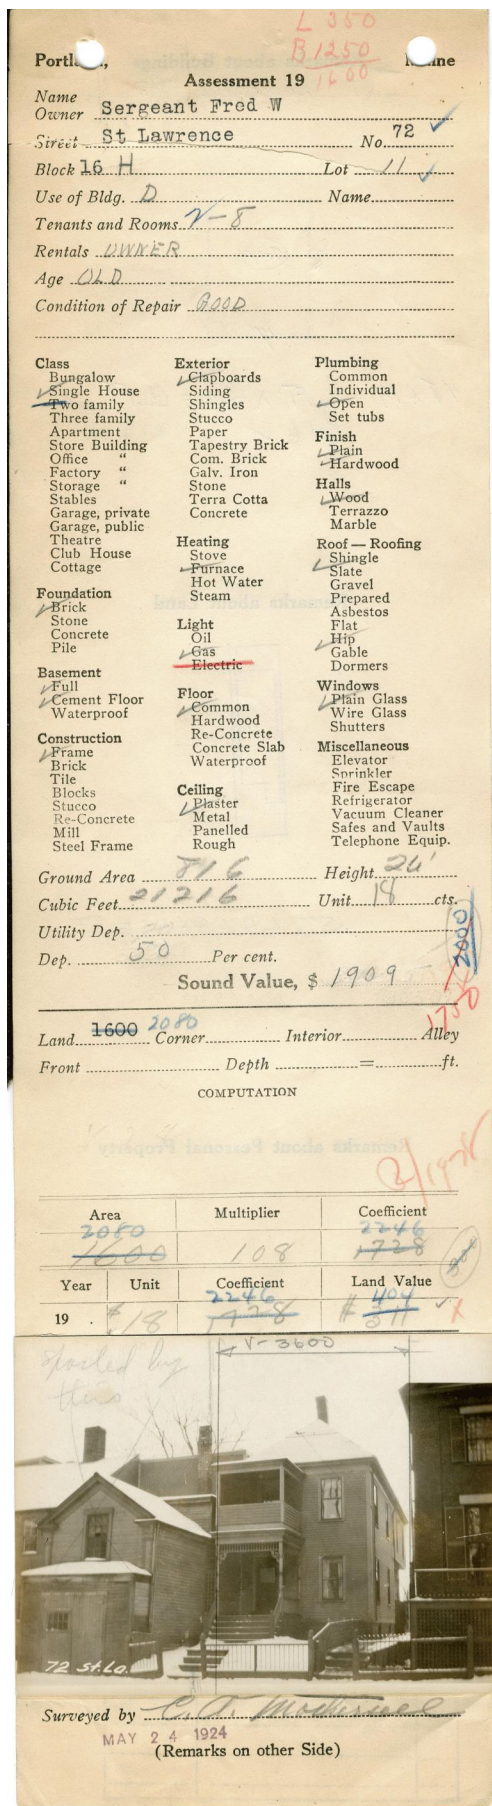 L 350
B 1250
1600
Portland, Maine
Assessment 19
Name
Owner Sergeant Fred W
Street St Lawrence No. 72
Block 16 H Lot 11
Use of Bldg. D Name
Tenants and Rooms 2-8
Rentals OWNER
Age OLD
Condition of Repair GOOD
Class
Bungalow
Single House
Two family
Three family
Apartment
Store Building
Office "
Factory "
Storage "
Stables
Garage, private
Garage, public
Theatre
Club House
Cottage
Foundation
Brick
Stone
Concrete
Pile
Basement
Full
Cement Floor
Waterproof
Construction
Frame
Brick
Tile
Blocks
Stucco
Re-Concrete
Mill
Steel Frame
Exterior
Clapboards
Siding
Shingles
Stucco
Paper
Tapestry Brick
Com. Brick
Galv. Iron
Stone
Terra Cotta
Concrete
Heating
Stove
Furnace
Hot Water
Steam
Light
Oil
Gas
Electric
Floor
Common
Hardwood
Re-Concrete
Concrete Slab
Waterproof
Ceiling
Plaster
Metal
Panelled
Rough
Plumbing
Common
Individual
Open
Set tubs
Finish
Plain
Hardwood
Halls
Wood
Terrazzo
Marble
Roof — Roofing
Shingle
Slate
Gravel
Prepared
Asbestos
Flat
Hip
Gable
Dormers
Windows
Plain Glass
Wire Glass
Shutters
Miscellaneous
Elevator
Sprinkler
Fire Escape
Refrigerator
Vacuum Cleaner
Safes and Vaults
Telephone Equip.
Ground Area 816 Height 26'
Cubic Feet 21216 Unit 18 cts.
Utility Dep.
2000
Dep. 50 Per cent.
Sound Value, $ 1909
1750
Land 1600 2080 Corner Interior Alley
Front Depth = ft.
COMPUTATION
Area Multiplier Coefficient
2080 2246
1600 108 1728
Year Unit Coefficient Land Value
2246 404
19 . $ 18 1728 $ 311
V-3600
Spoiled by
this
72 St. La.
Surveyed by
MAY 24 1924
(Remarks on other Side)